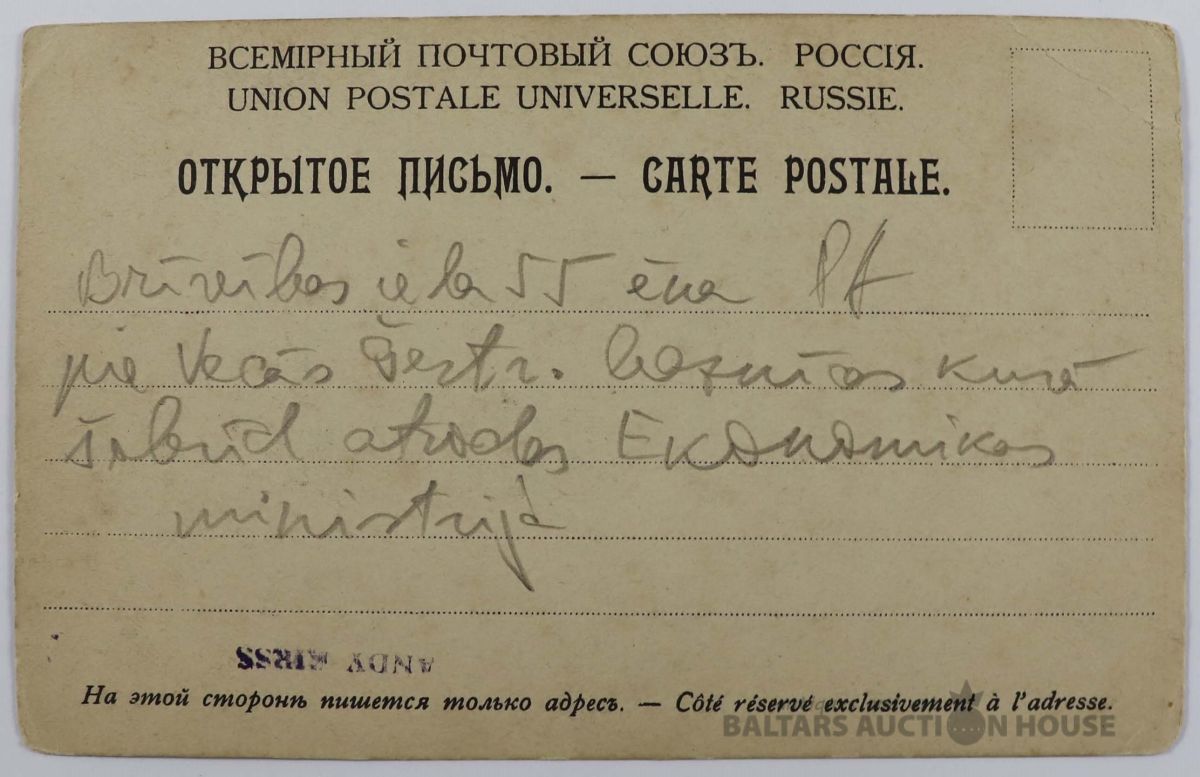 ВСЕМІРНЫЙ ПОЧТОВЫЙ СОЮЗЪ. РОССІЯ.
UNION POSTALE UNIVERSELLE. RUSSIE.
ОТКРЫТОЕ ПИСЬМО. — CARTE POSTALE.
Brīvības iela 55 ēna
pie Vecās Ģertr. baznīcas kurā
šobrīd atrodas Ekonomikas
ministrija
ANDY KIRSS
На этой сторонѣ пишется только адресъ. — Côté réservé exclusivement à l'adresse.
BALTARS AUCTION HOUSE